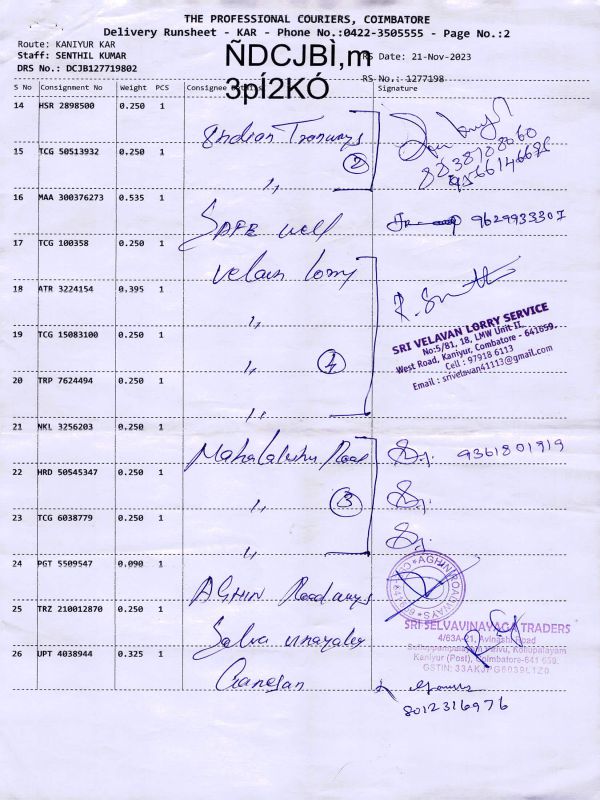 THE PROFESSIONAL COURIERS, COIMBATORE
Delivery Runsheet - KAR - Phone No.:0422-3505555 - Page No.:2
Route: KANIYUR KAR
Staff: SENTHIL KUMAR
RS Date: 21-Nov-2023
DRS No.: DCJB127719802
RS No.: 1277198
ÑDCJBÌ,m
3pí2KÓ
S No Consignment No Weight PCS Consignee Details Signature
14 HSR 2898500 0.250 1
15 TCG 50513932 0.250 1 ②
16 MAA 300376273 0.535 1 SAFE well 9629933307
17 TCG 100358 0.250 1 Velavan lorry
18 ATR 3224154 0.395 1 ,,
19 TCG 15083100 0.250 1 ,, ④
20 TRP 7624494 0.250 1 ,,
SRI VELAVAN LORRY SERVICE
No:5/81, 18, LMW Unit-II,
West Road, Kaniyur, Combatore - 641659.
Cell : 97918 6113
Email : srivelavan41113@gmail.com
21 NKL 3256203 0.250 1 9361801919
22 HRD 50545347 0.250 1 ,, ③
23 TCG 6038779 0.250 1 ,,
24 PGT 5509547 0.090 1 AGHIN Roadways
AGHIN ROADWAYS
25 TRZ 210012870 0.250 1 Selva vinayaga
SRI SELVAVINAYAGA TRADERS
4/63A-21, Avinashi Road
Kaniyur (Post), Coimbatore-641 659.
26 UPT 4038944 0.325 1 Ganesan
8012316976